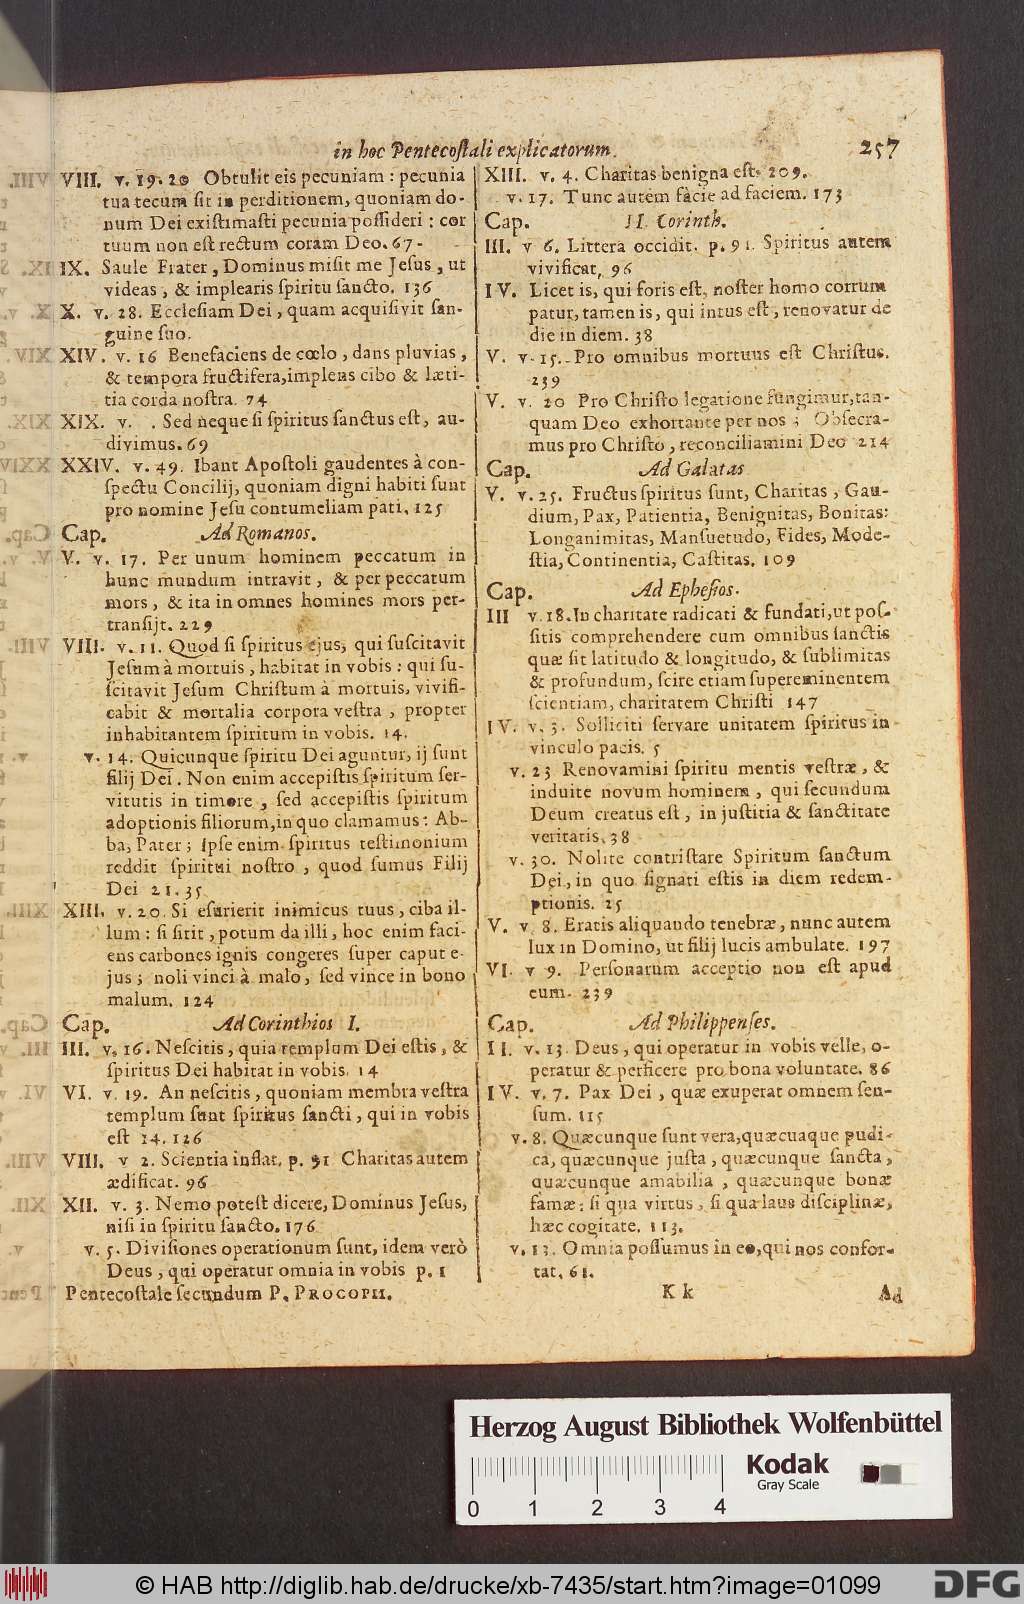 in hoc Pentecostali explicatorum. 257
VIII. v. 19. 20 Obtulit eis pecuniam : pecunia
tua tecum sit in perditionem, quoniam do-
num Dei existimasti pecunia possideri : cor
tuum non est rectum coram Deo. 67.
IX. Saule Frater, Dominus misit me Jesus, ut
videas, & implearis spiritu sancto. 136
X. v. 28. Ecclesiam Dei, quam acquisivit san-
guine suo.
XIV. v. 16 Benefaciens de cœlo, dans pluvias,
& tempora fructifera, implens cibo & læti-
tia corda nostra. 74
XIX. v. . Sed neque si spiritus sanctus est, au-
divimus. 69
XXIV. v. 49. Ibant Apostoli gaudentes à con-
spectu Concilij, quoniam digni habiti sunt
pro nomine Jesu contumeliam pati. 125
Cap. Ad Romanos.
V. v. 17. Per unum hominem peccatum in
hunc mundum intravit, & per peccatum
mors, & ita in omnes homines mors per-
transijt. 229
VIII. v. 11. Quod si spiritus ejus, qui suscitavit
Jesum à mortuis, habitat in vobis : qui su-
scitavit Jesum Christum à mortuis, vivifi-
cabit & mortalia corpora vestra, propter
inhabitantem spiritum in vobis. 14.
v. 14. Quicunque spiritu Dei aguntur, ij sunt
filij Dei. Non enim accepistis spiritum ser-
vitutis in timore, sed accepistis spiritum
adoptionis filiorum, in quo clamamus : Ab-
ba, Pater ; Ipse enim spiritus testimonium
reddit spiritui nostro, quod sumus Filij
Dei 21. 35
XIII. v. 20. Si esurierit inimicus tuus, ciba il-
lum : si sitit, potum da illi, hoc enim faci-
ens carbones ignis congeres super caput e-
jus ; noli vinci à malo, sed vince in bono
malum. 124
Cap. Ad Corinthios I.
III. v. 16. Nescitis, quia templum Dei estis, &
spiritus Dei habitat in vobis. 14
VI. v. 19. An nescitis, quoniam membra vestra
templum sunt spiritus sancti, qui in vobis
est 14. 126
VIII. v 2. Scientia inflat. p. 91 Charitas autem
ædificat. 96
XII. v. 3. Nemo potest dicere, Dominus Jesus,
nisi in spiritu sancto. 176
v. 5. Divisiones operationum sunt, idem verò
Deus, qui operatur omnia in vobis p. 1
Pentecostale secundum P. PROCOPII.
XIII. v. 4. Charitas benigna est. 209.
v. 17. Tunc autem facie ad faciem. 173
Cap. II. Corinth.
III. v 6. Littera occidit. p. 91. Spiritus autem
vivificat, 96
IV. Licet is, qui foris est, noster homo corrum
patur, tamen is, qui intus est, renovatur de
die in diem. 38
V. v. 15. Pro omnibus mortuus est Christus.
239
V. v. 20 Pro Christo legatione fungimur, tan-
quam Deo exhortante per nos ; Obsecra-
mus pro Christo, reconciliamini Deo 214
Cap. Ad Galatas
V. v. 25. Fructus spiritus sunt, Charitas, Gau-
dium, Pax, Patientia, Benignitas, Bonitas:
Longanimitas, Mansuetudo, Fides, Mode-
stia, Continentia, Castitas. 109
Cap. Ad Ephesios.
III v. 18. In charitate radicati & fundati, ut pos-
sitis comprehendere cum omnibus sanctis
quæ sit latitudo & longitudo, & sublimitas
& profundum, scire etiam supereminentem
scientiam, charitatem Christi 147
IV. v. 3. Solliciti servare unitatem spiritus in
vinculo pacis. 5
v. 23 Renovamini spiritu mentis vestræ, &
induite novum hominem, qui secundum
Deum creatus est, in justitia & sanctitate
veritatis. 38
v. 30. Nolite contristare Spiritum sanctum
Dei, in quo signati estis in diem redem-
ptionis. 25
V. v 8. Eratis aliquando tenebræ, nunc autem
lux in Domino, ut filij lucis ambulate. 197
VI. v 9. Personarum acceptio non est apud
eum. 239
Cap. Ad Philippenses.
II. v. 13. Deus, qui operatur in vobis velle, o-
peratur & perficere pro bona voluntate. 86
IV. v. 7. Pax Dei, quæ exuperat omnem sen-
sum. 115
v. 8. Quæcunque sunt vera, quæcuaque pudi-
ca, quæcunque justa, quæcunque sancta,
quæcunque amabilia, quæcunque bonæ
famæ : si qua virtus, si qua laus disciplinæ,
hæc cogitate. 113.
v. 13. Omnia possumus in eo, qui nos confor-
tat. 61.
K k Ad
Herzog August Bibliothek Wolfenbüttel
Kodak
Gray Scale
0 1 2 3 4
© HAB http://diglib.hab.de/drucke/xb-7435/start.htm?image=01099
DFG